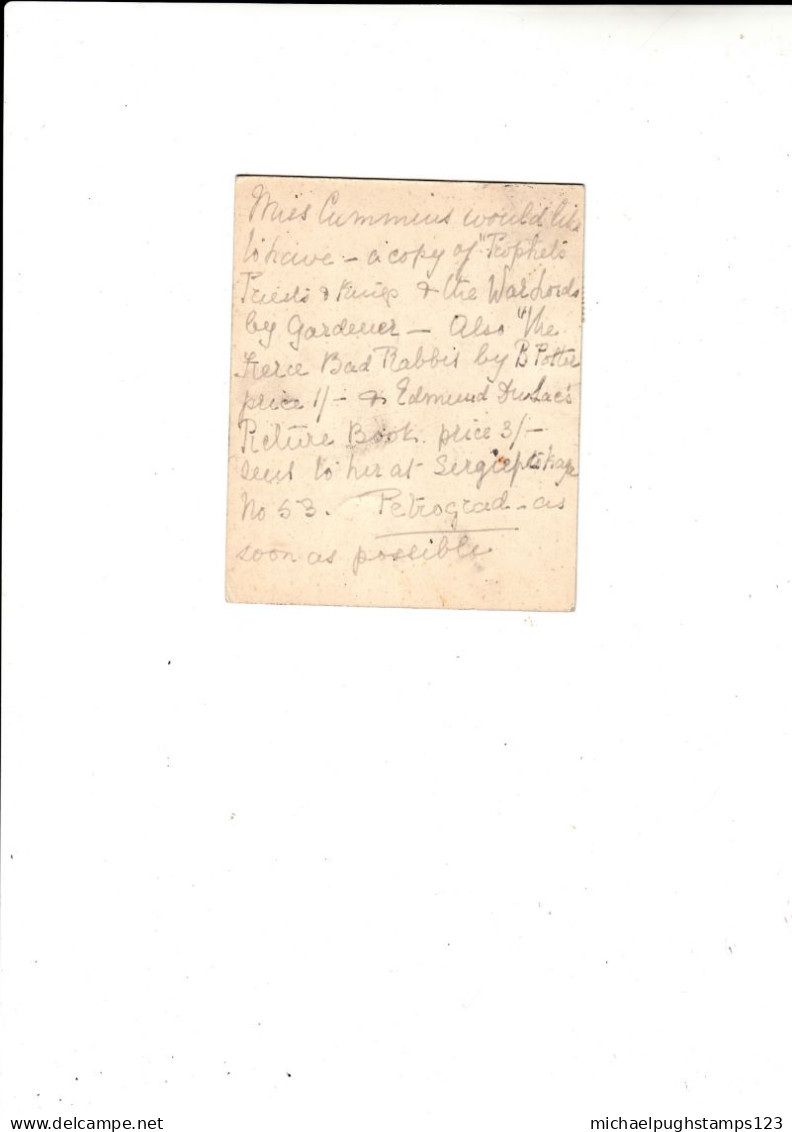 Miss Cummins would like
to have – a copy of "Prophets
Priests & Kings & the War Lords
by Gardener – Also "The
Fierce Bad Rabbit by B Potter
price 1/- & Edmund Du Lac's
Picture Book. price 3/-
sent to her at
No 53. Petrograd – as
soon as possible
michaelpughstamps123